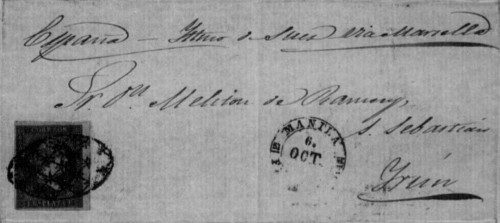 España — Istmo de Suez via Marsella
Sr. Dn. Meliton de Ramery,
S. Sebastian
Irún
MANILA
6
OCT.
CORREOS